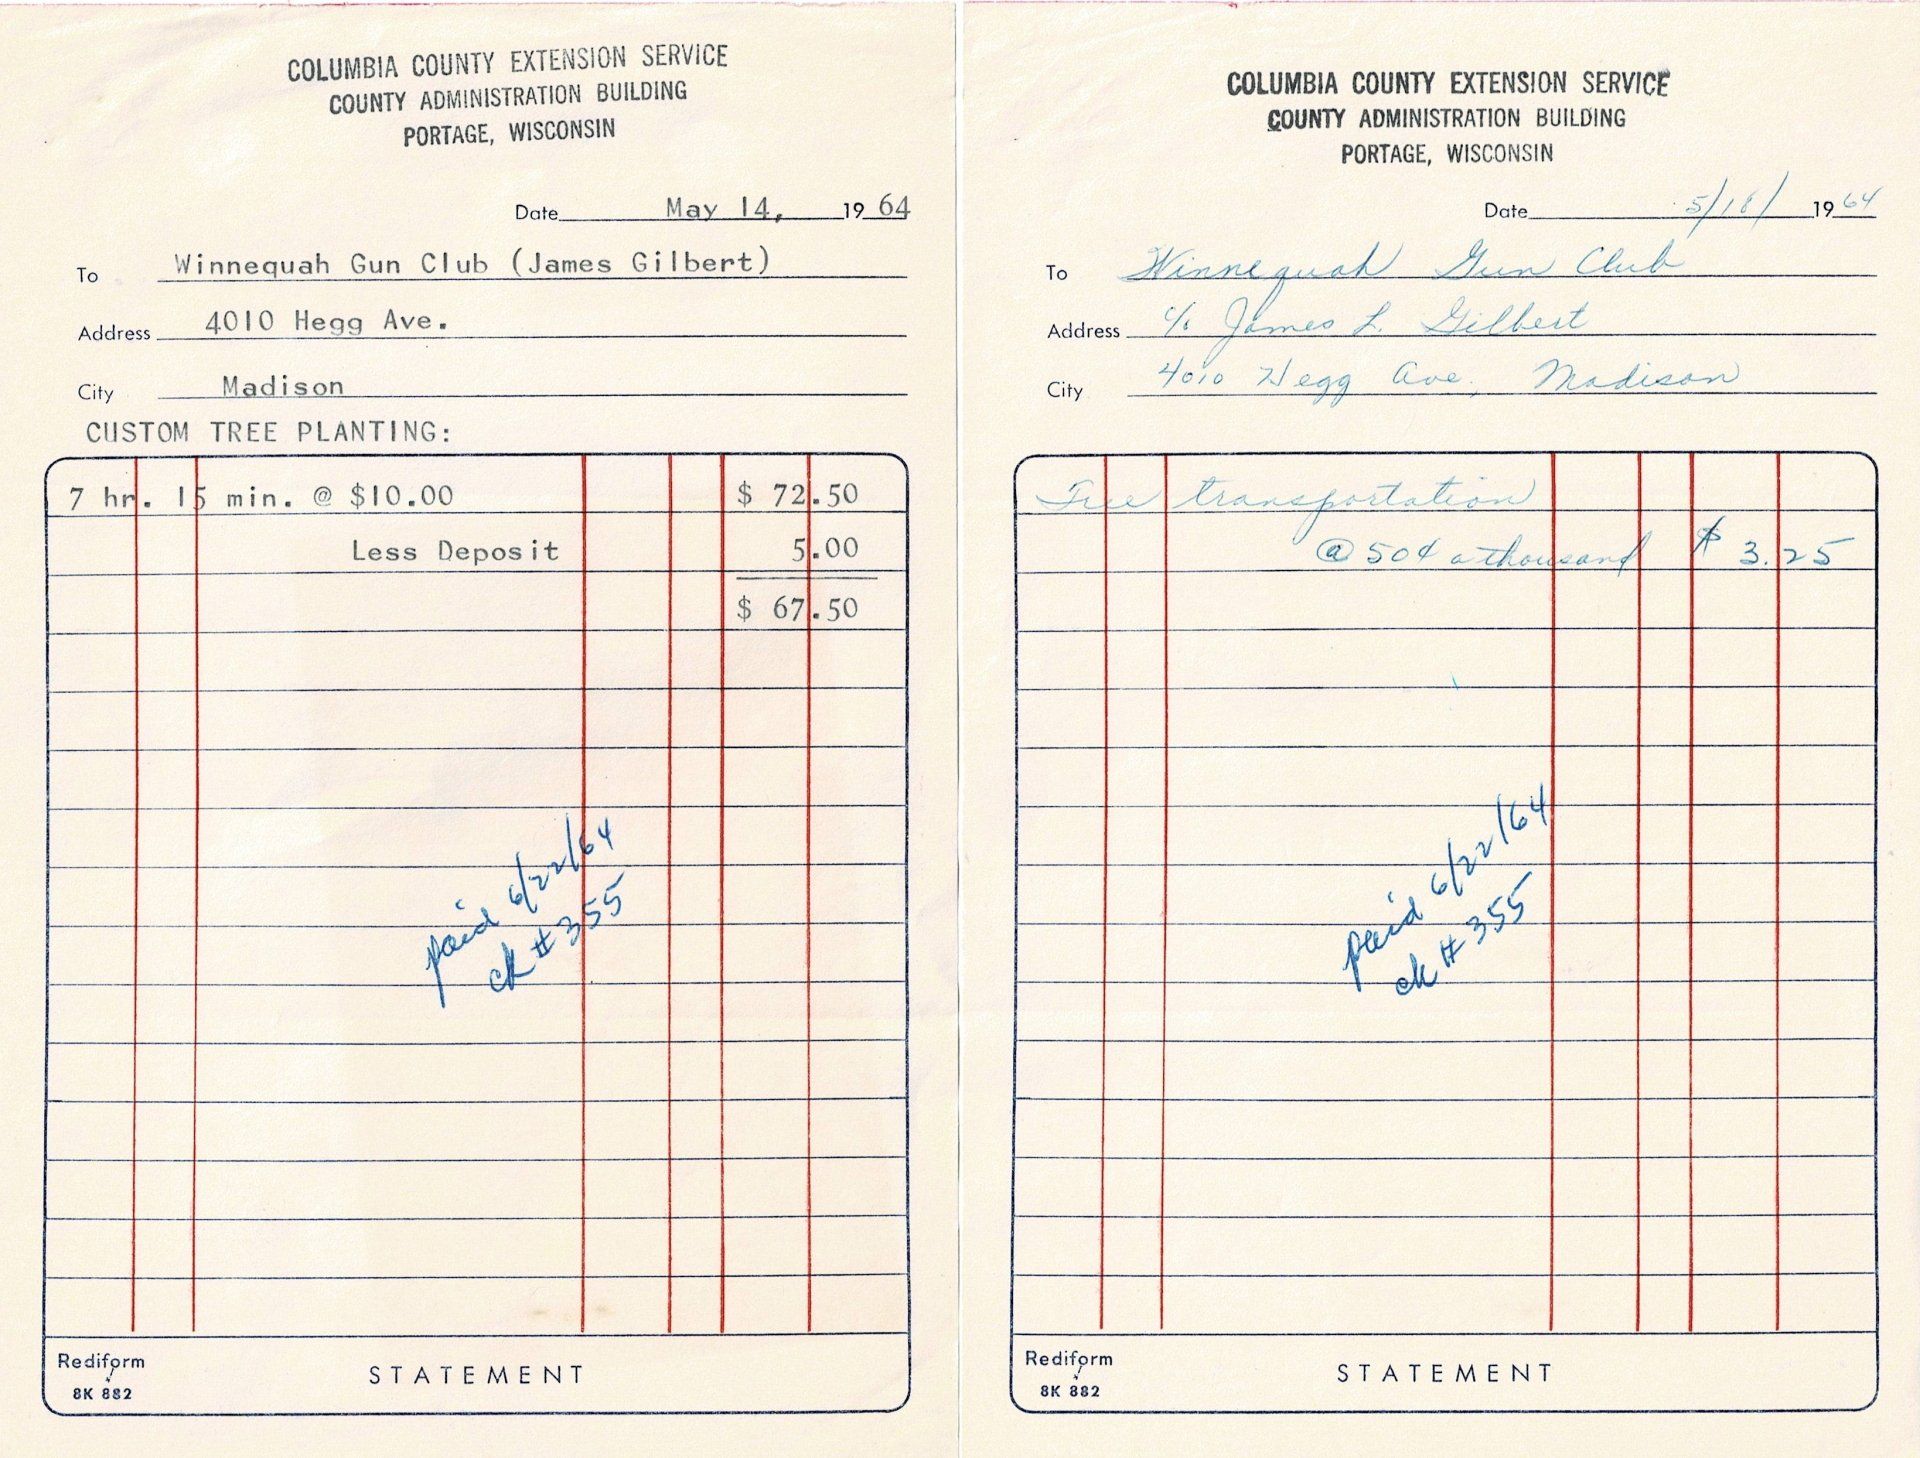 COLUMBIA COUNTY EXTENSION SERVICE
COUNTY ADMINISTRATION BUILDING
PORTAGE, WISCONSIN
Date May 14, 19 64
To Winnequah Gun Club (James Gilbert)
Address 4010 Hegg Ave.
City Madison
CUSTOM TREE PLANTING:
7 hr. 15 min. @ $10.00 $ 72.50
Less Deposit 5.00
$ 67.50
paid 6/22/64
ck # 355
Rediform
8K 882
STATEMENT
COLUMBIA COUNTY EXTENSION SERVICE
COUNTY ADMINISTRATION BUILDING
PORTAGE, WISCONSIN
Date 5/18/ 19 64
To Winnequah Gun Club
Address c/o James L. Gilbert
City 4010 Hegg Ave, Madison
Tree transportation
@ 50¢ a thousand $ 3.25
paid 6/22/64
ck # 355
Rediform
8K 882
STATEMENT